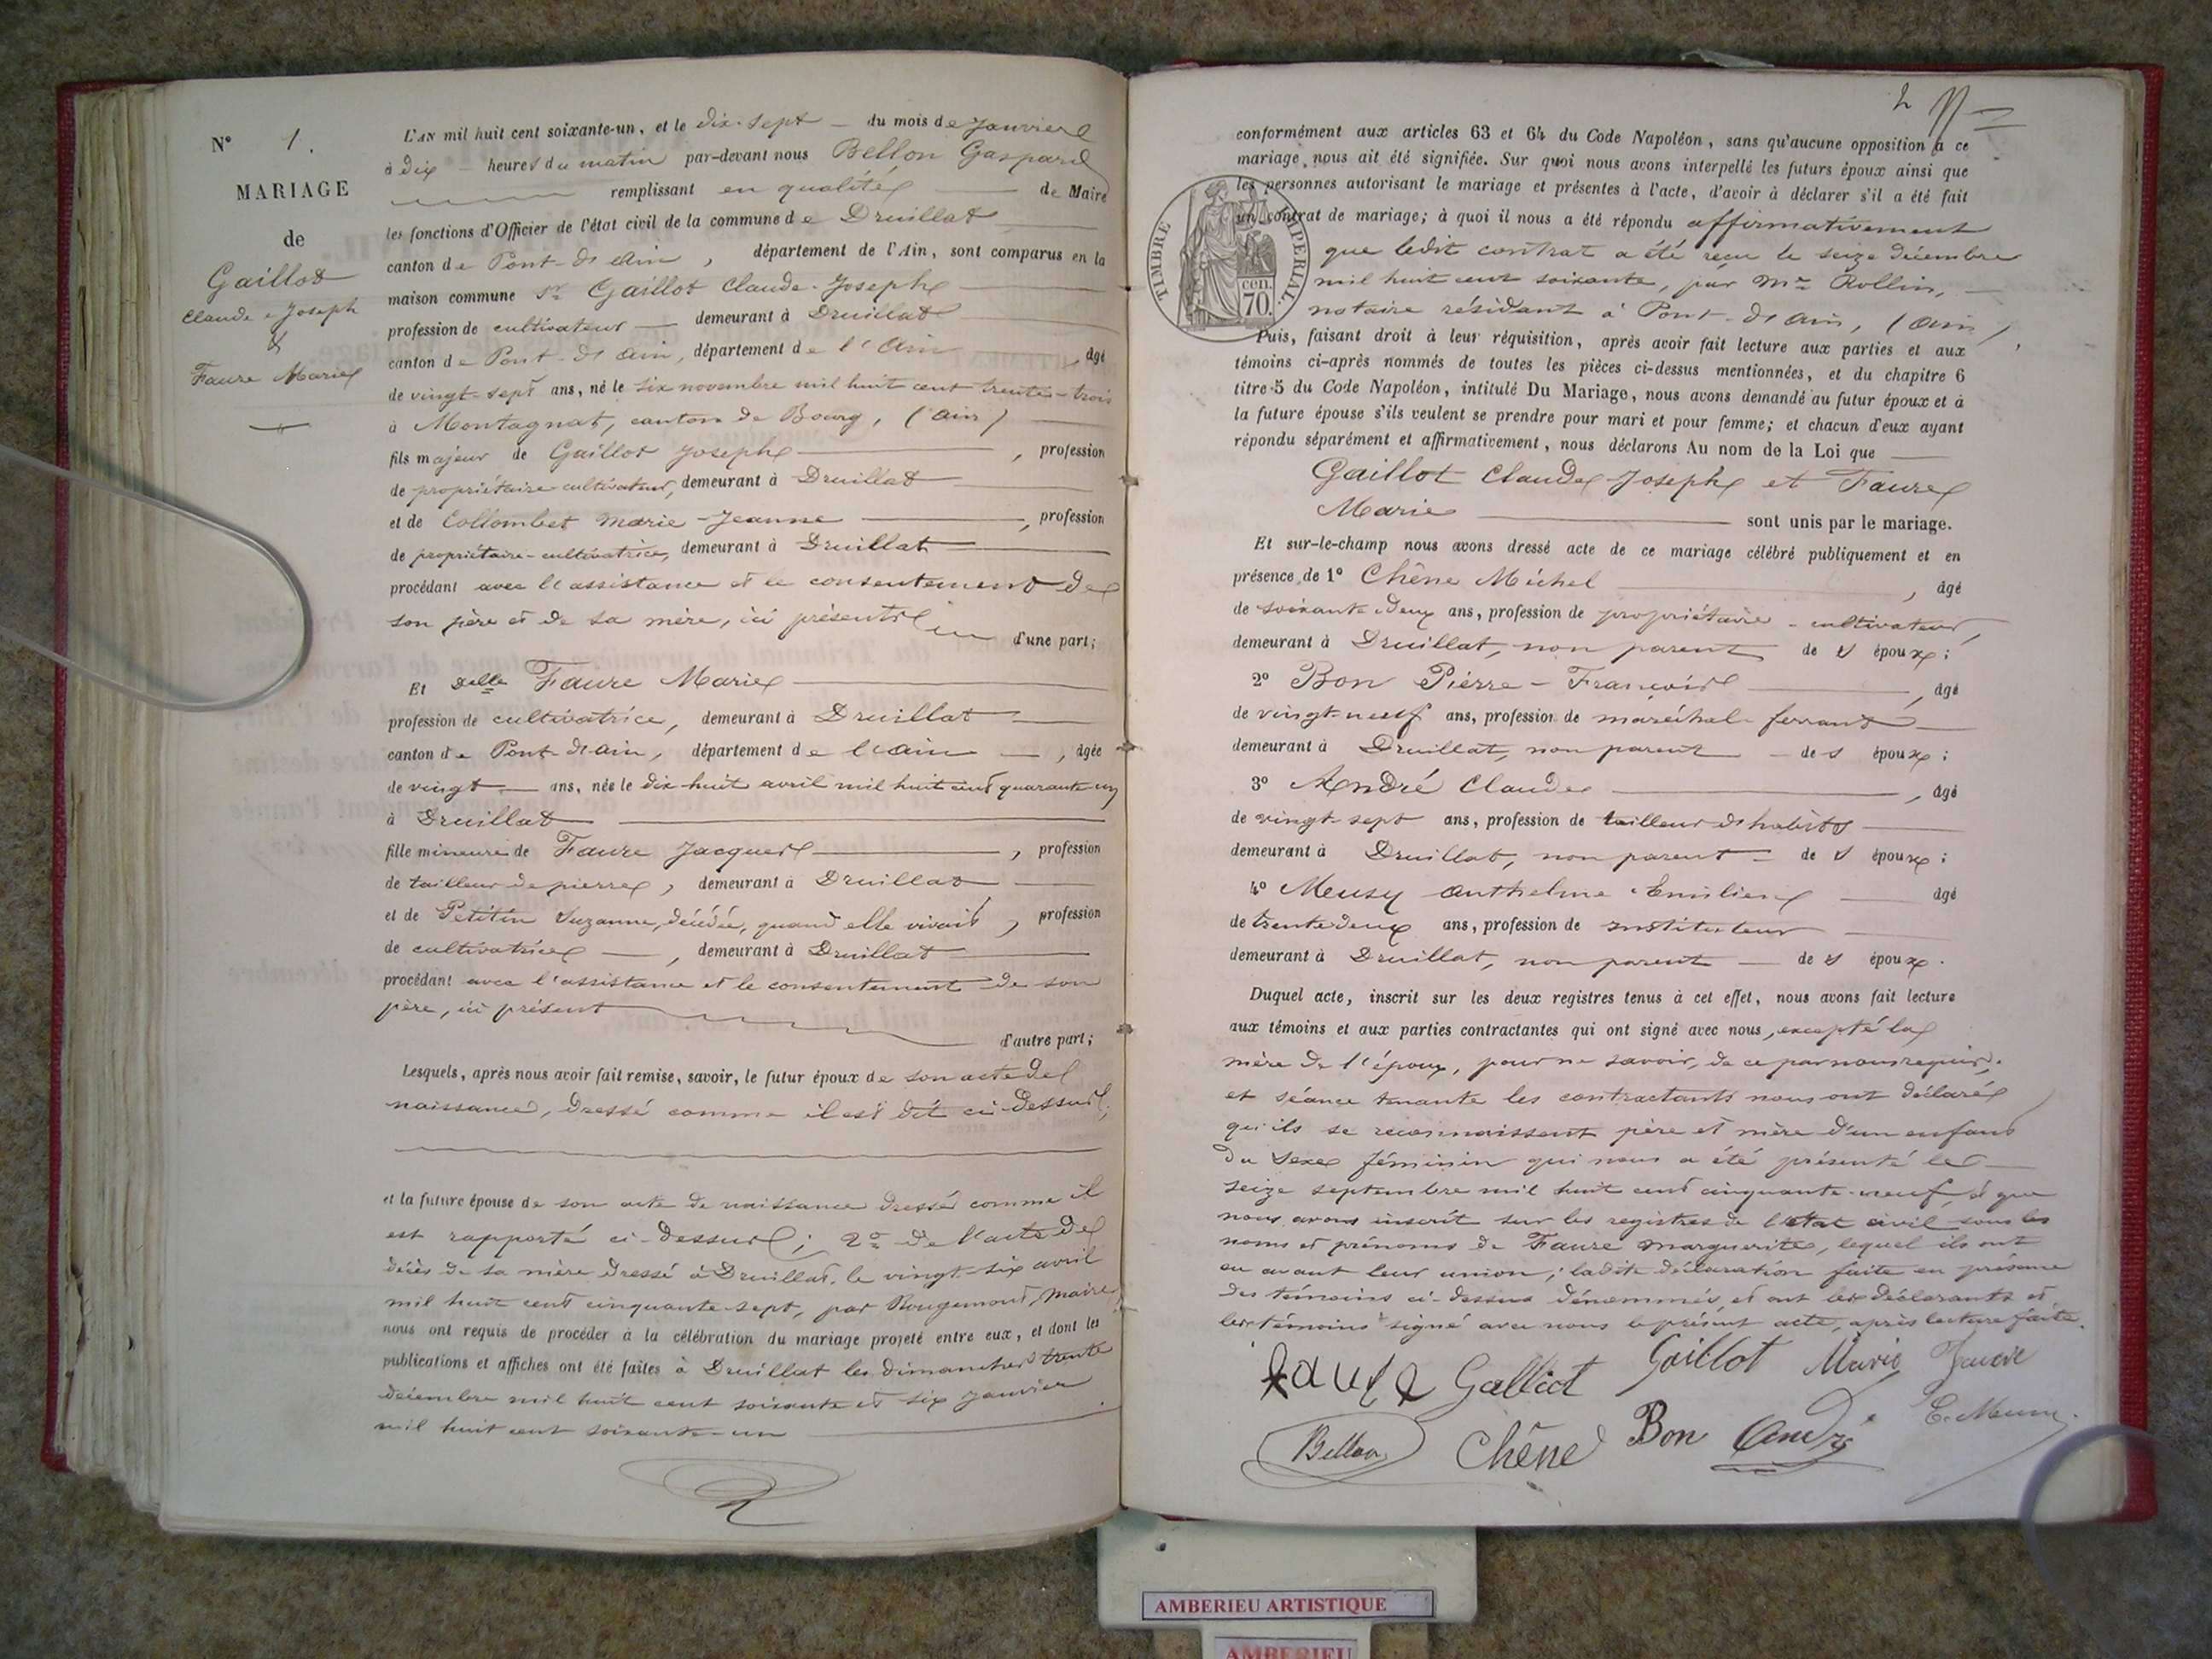 N° 1.
MARIAGE
de
Gaillot
Claude-Joseph
&
Faure Marie
L'AN mil huit cent soixante-un, et le dix-sept du mois de Janvier
à dix heures du matin par-devant nous Bellon Gaspard
remplissant en qualité de Maire
les fonctions d'Officier de l'état civil de la commune de Druillat
canton de Pont-d'Ain, département de l'Ain, sont comparus en la
maison commune Sr Gaillot Claude-Joseph
profession de cultivateur demeurant à Druillat
canton de Pont-d'Ain, département de l'Ain, âgé
de vingt-sept ans, né le six novembre mil huit cent trente-trois
à Montagnat, canton de Bourg, (Ain)
fils majeur de Gaillot Joseph, profession
de propriétaire-cultivateur, demeurant à Druillat
et de Collombet Marie-Jeanne, profession
de propriétaire-cultivatrice, demeurant à Druillat
procédant avec l'assistance et le consentement de
son père et de sa mère, ici présents d'une part;
Et Delle Faure Marie
profession de cultivatrice, demeurant à Druillat
canton de Pont-d'Ain, département de l'Ain, âgée
de vingt ans, née le dix-huit avril mil huit cent quarante-un
à Druillat
fille mineure de Faure Jacques, profession
de tailleur de pierre, demeurant à Druillat
et de Petitin Suzanne, décédée, quand elle vivait, profession
de cultivatrice, demeurant à Druillat
procédant avec l'assistance et le consentement de son
père, ici présent
d'autre part;
Lesquels, après nous avoir fait remise, savoir, le futur époux de son acte de
naissance, dressé comme il est dit ci-dessus;
et la future épouse de son acte de naissance dressé comme il
est rapporté ci-dessus; 2° de l'acte de
décès de sa mère dressé à Druillat, le vingt-six avril
mil huit cent cinquante-sept, par Rougemont, Maire
nous ont requis de procéder à la célébration du mariage projeté entre eux, et dont les
publications et affiches ont été faites à Druillat les dimanches trente
décembre mil huit cent soixante et six janvier
mil huit cent soixante-un
2
conformément aux articles 63 et 64 du Code Napoléon, sans qu'aucune opposition à ce
mariage nous ait été signifiée. Sur quoi nous avons interpellé les futurs époux ainsi que
les personnes autorisant le mariage et présentes à l'acte, d'avoir à déclarer s'il a été fait
un contrat de mariage; à quoi il nous a été répondu affirmativement
que ledit contrat a été reçu le seize décembre
mil huit cent soixante, par Me Rollin,
notaire résidant à Pont-d'Ain, (Ain),
TIMBRE IMPERIAL.
70. cen.
Puis, faisant droit à leur réquisition, après avoir fait lecture aux parties et aux
témoins ci-après nommés de toutes les pièces ci-dessus mentionnées, et du chapitre 6
titre 5 du Code Napoléon, intitulé Du Mariage, nous avons demandé au futur époux et à
la future épouse s'ils veulent se prendre pour mari et pour femme; et chacun d'eux ayant
répondu séparément et affirmativement, nous déclarons Au nom de la Loi que
Gaillot Claude-Joseph et Faure
Marie sont unis par le mariage.
Et sur-le-champ nous avons dressé acte de ce mariage célébré publiquement et en
présence de 1° Chêne Michel, âgé
de soixante-deux ans, profession de propriétaire-cultivateur,
demeurant à Druillat, non parent des époux;
2° Bon Pierre-François, âgé
de vingt-neuf ans, profession de maréchal-ferrant
demeurant à Druillat, non parent des époux;
3° André Claude, âgé
de vingt-sept ans, profession de tailleur d'habits
demeurant à Druillat, non parent des époux;
4° Meusy Anthelme Emilien âgé
de trente-deux ans, profession de Instituteur
demeurant à Druillat, non parent des époux.
Duquel acte, inscrit sur les deux registres tenus à cet effet, nous avons fait lecture
aux témoins et aux parties contractantes qui ont signé avec nous, excepté la
mère de l'époux, pour ne savoir, de ce par nous requise.
et séance tenante les contractants nous ont déclaré
qu'ils se reconnaissent père et mère d'un enfant
du sexe féminin qui nous a été présenté le
seize septembre mil huit cent cinquante-neuf, et que
nous avons inscrit sur les registres de l'état civil sous les
noms et prénoms de Faure Marguerite, lequel ils ont
eu avant leur union; ladite déclaration faite en présence
des témoins ci-dessus dénommés, et ont les déclarants et
les témoins signé avec nous le présent acte, après lecture faite.
Faure Galliot Gaillot Marie Faure
Bellon Chêne Bon André E. Meusy
AMBERIEU ARTISTIQUE
AMBERIEU